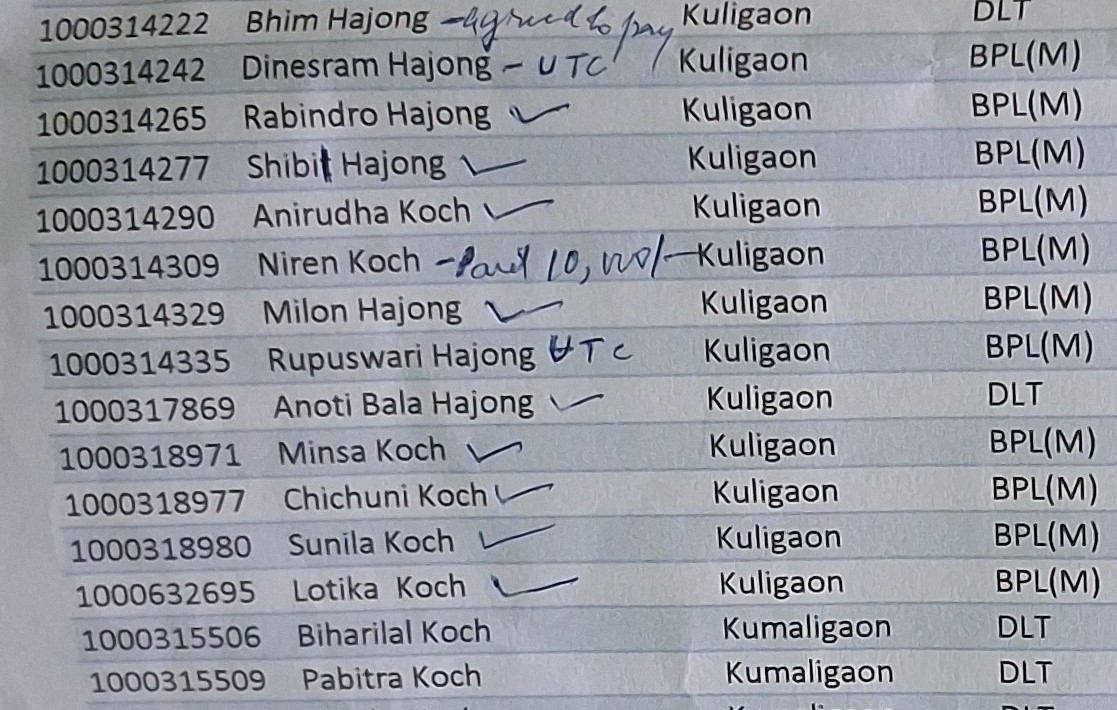 1000314222 Bhim Hajong - agreed to pay Kuligaon DLT
1000314242 Dinesram Hajong - UTC Kuligaon BPL(M)
1000314265 Rabindro Hajong ✓ Kuligaon BPL(M)
1000314277 Shibit Hajong ✓ Kuligaon BPL(M)
1000314290 Anirudha Koch ✓ Kuligaon BPL(M)
1000314309 Niren Koch - Paid 10,000/- Kuligaon BPL(M)
1000314329 Milon Hajong ✓ Kuligaon BPL(M)
1000314335 Rupuswari Hajong UTC Kuligaon BPL(M)
1000317869 Anoti Bala Hajong ✓ Kuligaon DLT
1000318971 Minsa Koch ✓ Kuligaon BPL(M)
1000318977 Chichuni Koch ✓ Kuligaon BPL(M)
1000318980 Sunila Koch ✓ Kuligaon BPL(M)
1000632695 Lotika Koch ✓ Kuligaon BPL(M)
1000315506 Biharilal Koch Kumaligaon DLT
1000315509 Pabitra Koch Kumaligaon DLT